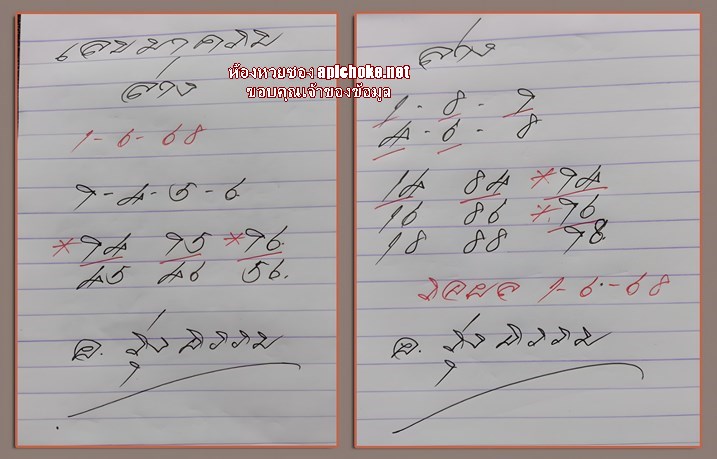 เลขมาครับ
ล่าง
1-6-68
7-4-5-6
*74 75 *76.
45 46 56.
อ. รุ่ง
ห้องหวยซอง apichoke.net
ขอบคุณเจ้าของข้อมูล
ล่าง
1-8-7
4-6-8
14 84 *74
16 86 *76
18 88 78
1-6-68
อ. รุ่ง